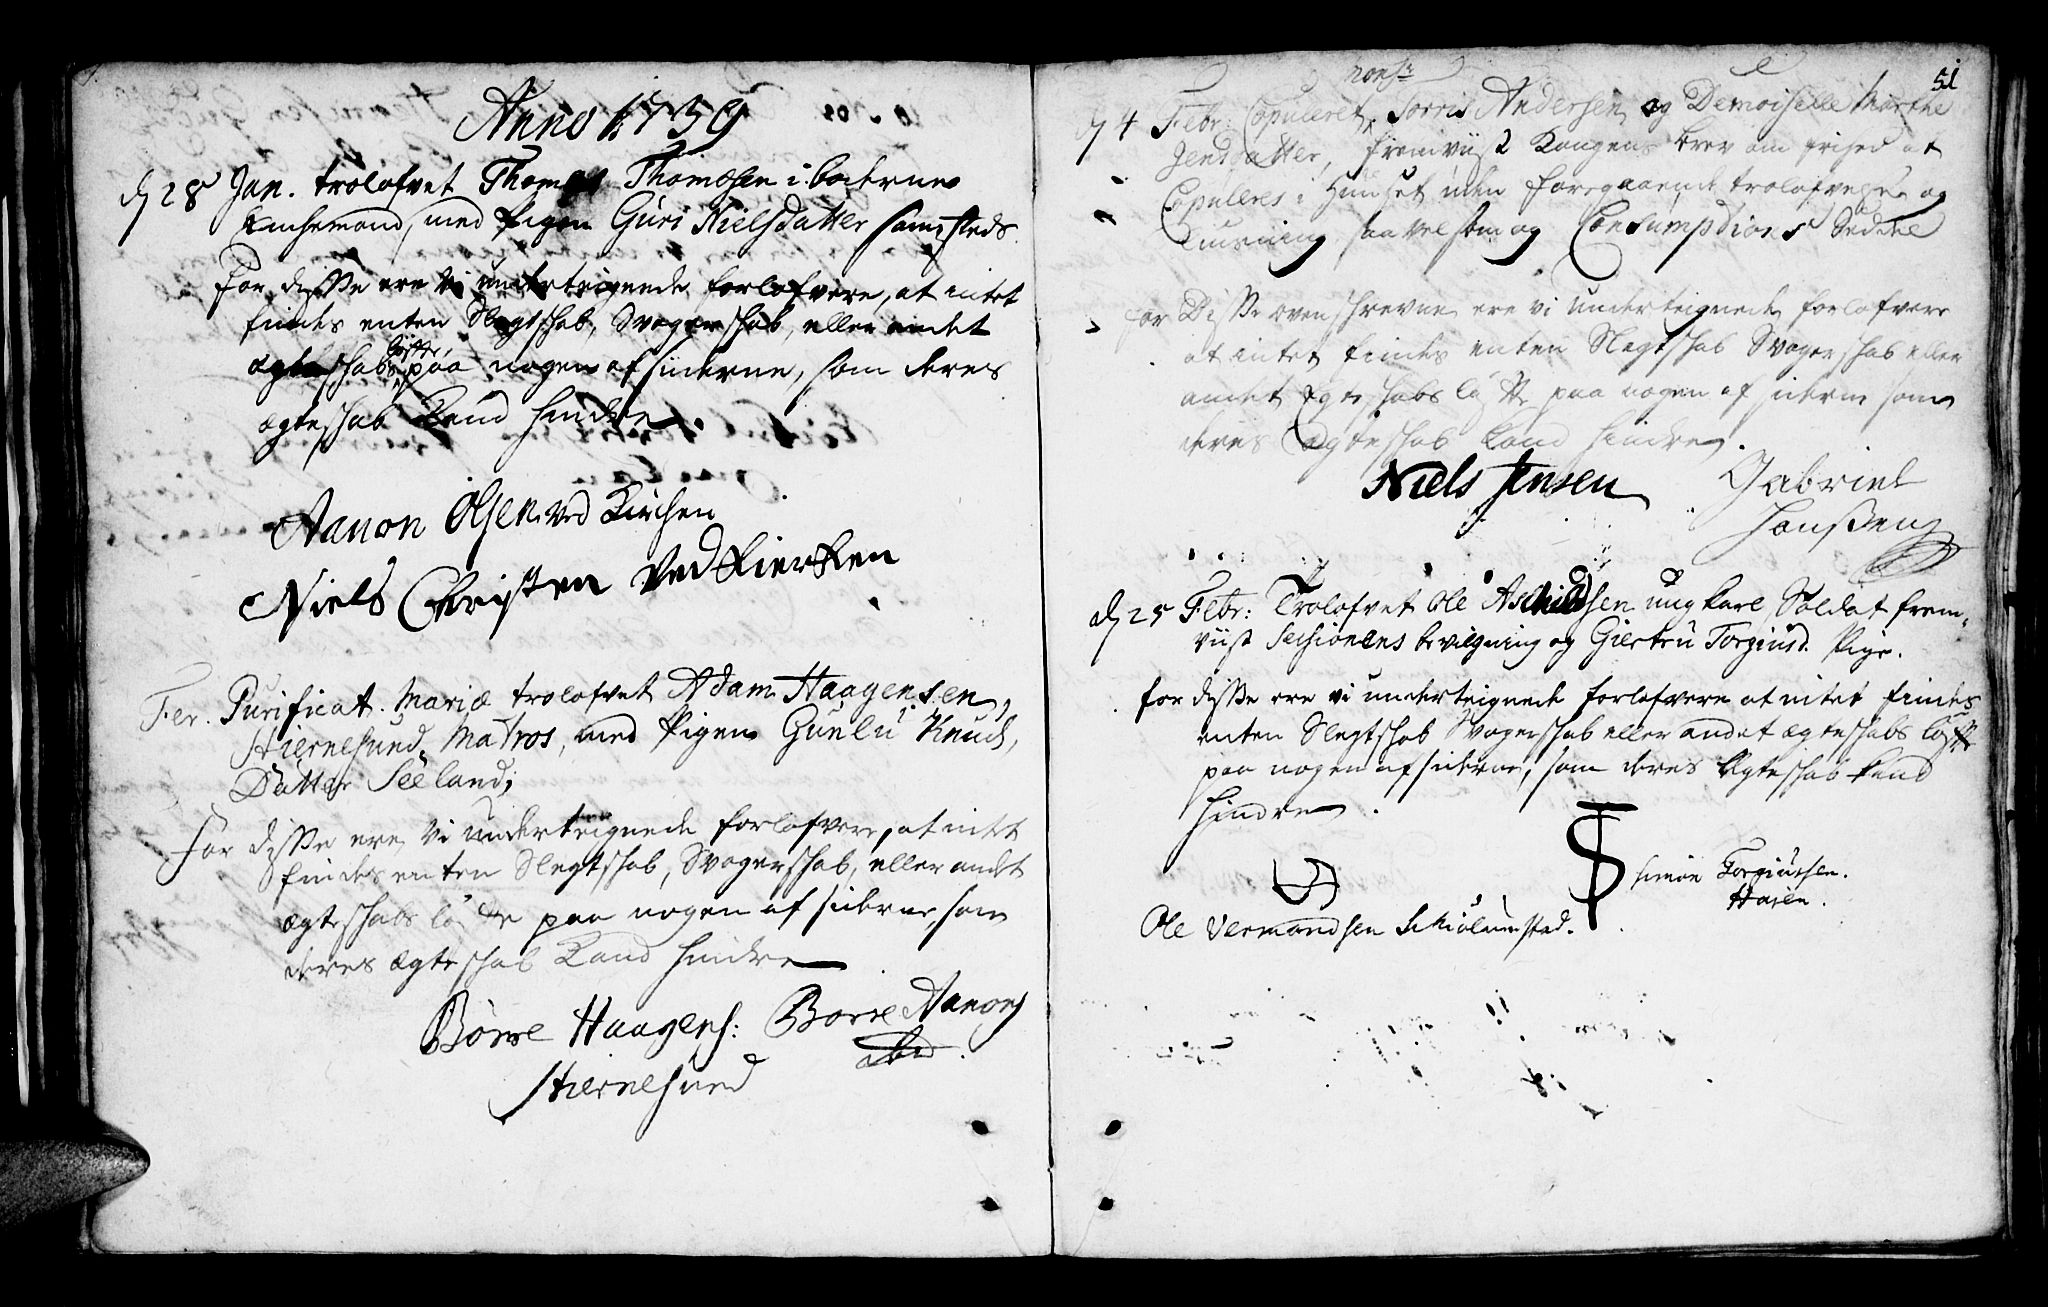 Anno 1739
d 28 Jan. trolofvet Thomas Thomæsen i boderne
Enchemand, med Pigen Guri Nielsdatter sammesteds
For disse ere vi underteignede forlofvere, at intet
findes enten Slegtschab, Svogerschab, eller andet
ægteschabs løfte paa nogen af siderne, som deres
ægteschab kand hindre.
Aanon Olsen ved Kirchen
Niels Christen ved Kierken
Fer. Purificat. Mariæ trolofvet Adam Haagensen,
Hiernesund, Matros, med Pigen Gunlu Knuds
Datter Seeland;
For disse ere vi underteignede forlofvere, at intet
findes enten Slegtschab, Svogerschab, eller andet
ægteschabs løfte paa nogen af siderne, som
deres ægteschab kand hindre
Børre Haagens: Borre Aanons
Hiernesund ibid.
51
Monsr
d 4 Febr: Copuleret Torris Andersen og Demoiselle Marthe
Jensdatter, fremviist Kongens brev om frihed at
Copuleres i Huuset uden foregaaende trolofvelse og
saavelsom og Consumptions Seddel
for Disse ovenschrevne ere vi underteignede forlofvere
at intet findes enten Slegtschab Svogerschab eller
andet Egteschabs løfte paa nogen af siderne som
deres Ægteschab kand hindre.
Niels Jensen Gabriel
Hansen
d 25 Febr: Trolofvet Ole Aschildsen ungkarl Soldat frem-
viist Sessionens bevilgning og Giertru Torgiusd. Pige.
for disse ere vi undertegnede forlofvere at intet findes
enten Slegtschab Svogerschab eller andet ægteschabs løfte
paa nogen af siderne, som deres Egteschab kand
hindre.
Simon Torgiuesen.
Haaen.
Ole Vermundsen Schiølumstad.